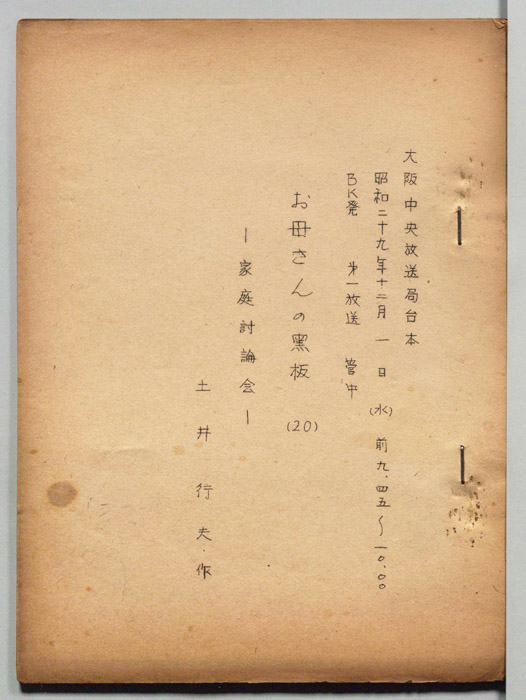 大阪中央放送局台本
昭和二十九年十二月一日(水)前九.四五〜一〇.〇〇
BK発 㐧一放送 管中
お母さんの黒板 (20)
—家庭討論会—
土井行夫・作